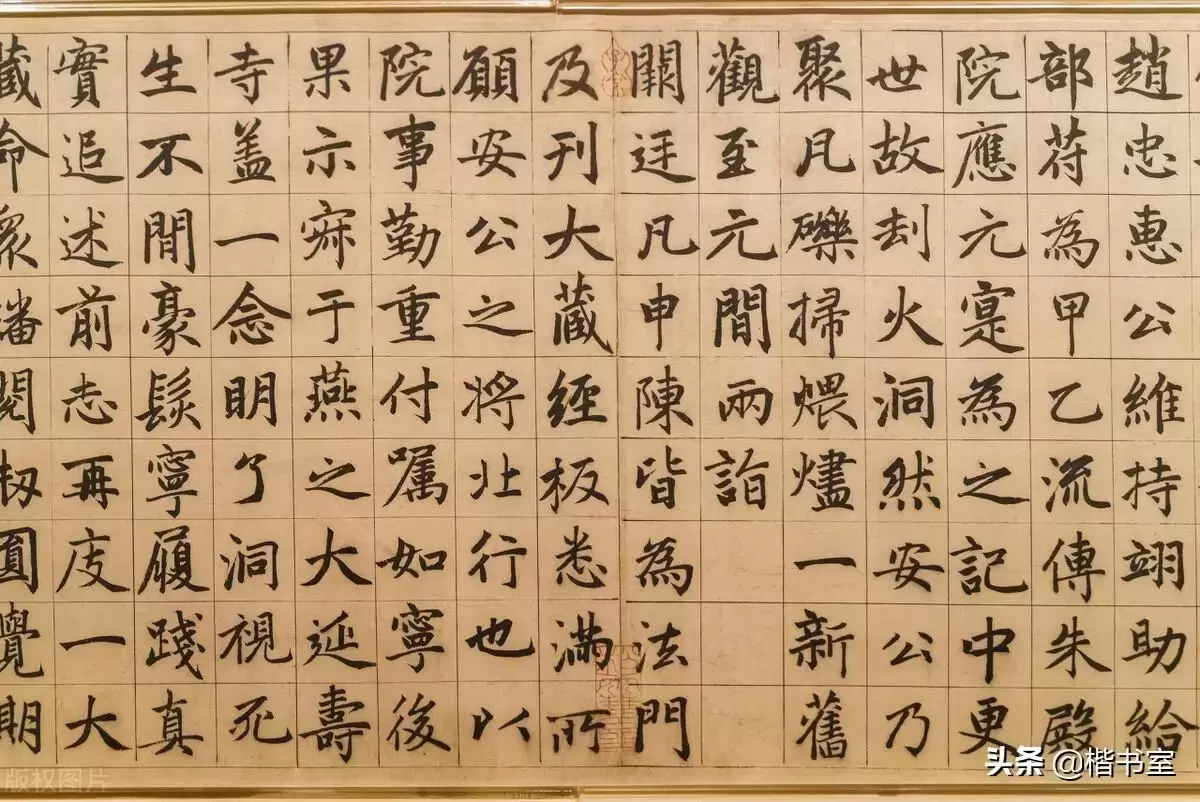 趙忠惠公維持翊助給
部符為甲乙流傳朱殿
院應元寔為之記中更
世故刦火洞然安公乃
聚瓦礫掃煨燼一新舊
觀至元間兩詣
闕廷凡申陳皆為法門
及刊大藏經板悉滿所
願安公之將北行也以
院事勤重付嘱如寧後
果示寂于燕之大延壽
寺盖一念明了洞視死
生不間豪髮寧履踐真
實追述前志再庋一大
藏命眾閱圓覺期
版权图片
头条 @楷书室